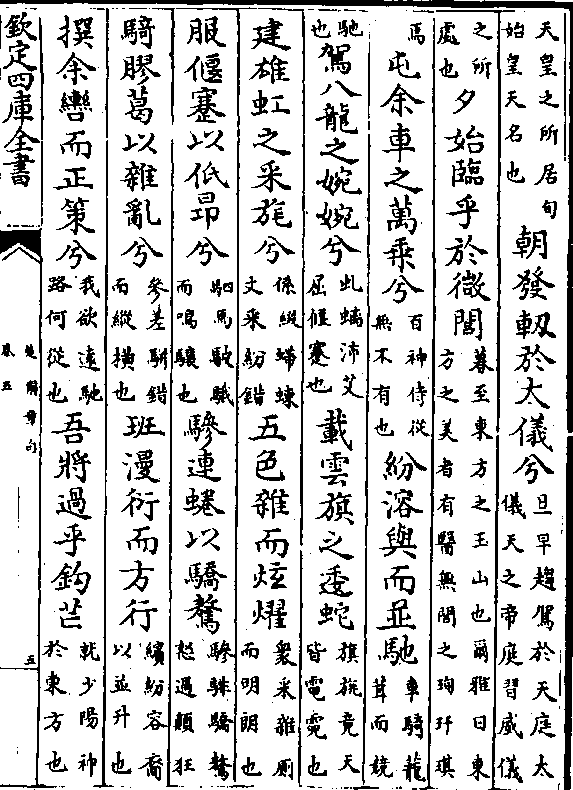 天皇之所居句始皇天名也朝發軔於太儀兮旦早趨駕於天庭太儀天之帝庭習威儀
之所處也夕始臨乎於微閭暮至東方之玉山也爾雅曰東方之美者有醫無閭之珣玗琪
焉屯余車之萬乘兮百神侍從無不有也紛溶與而並馳車騎籠茸而競
馳也駕八龍之婉婉兮虬螭沛艾屈偃蹇也載雲旗之逶蛇旗旄竟天皆電霓也
建雄虹之采旄兮係綴蝃蝀文采紛錯五色雜而炫燿衆采雜厠而明朗也
服偃蹇以低昂兮駟馬駊騀而鳴驤也驂連蜷以驕驁驂騑驕驁怒過顛狂
騎膠葛以雜亂兮參差駢錯而縱橫也班漫衍而方行繽紛容裔以並升也
撰余轡而正策兮我欲遠馳路何從也吾將過乎鈎芒就少陽神於東方也
欽定四庫全書
楚辭章句
卷五
五